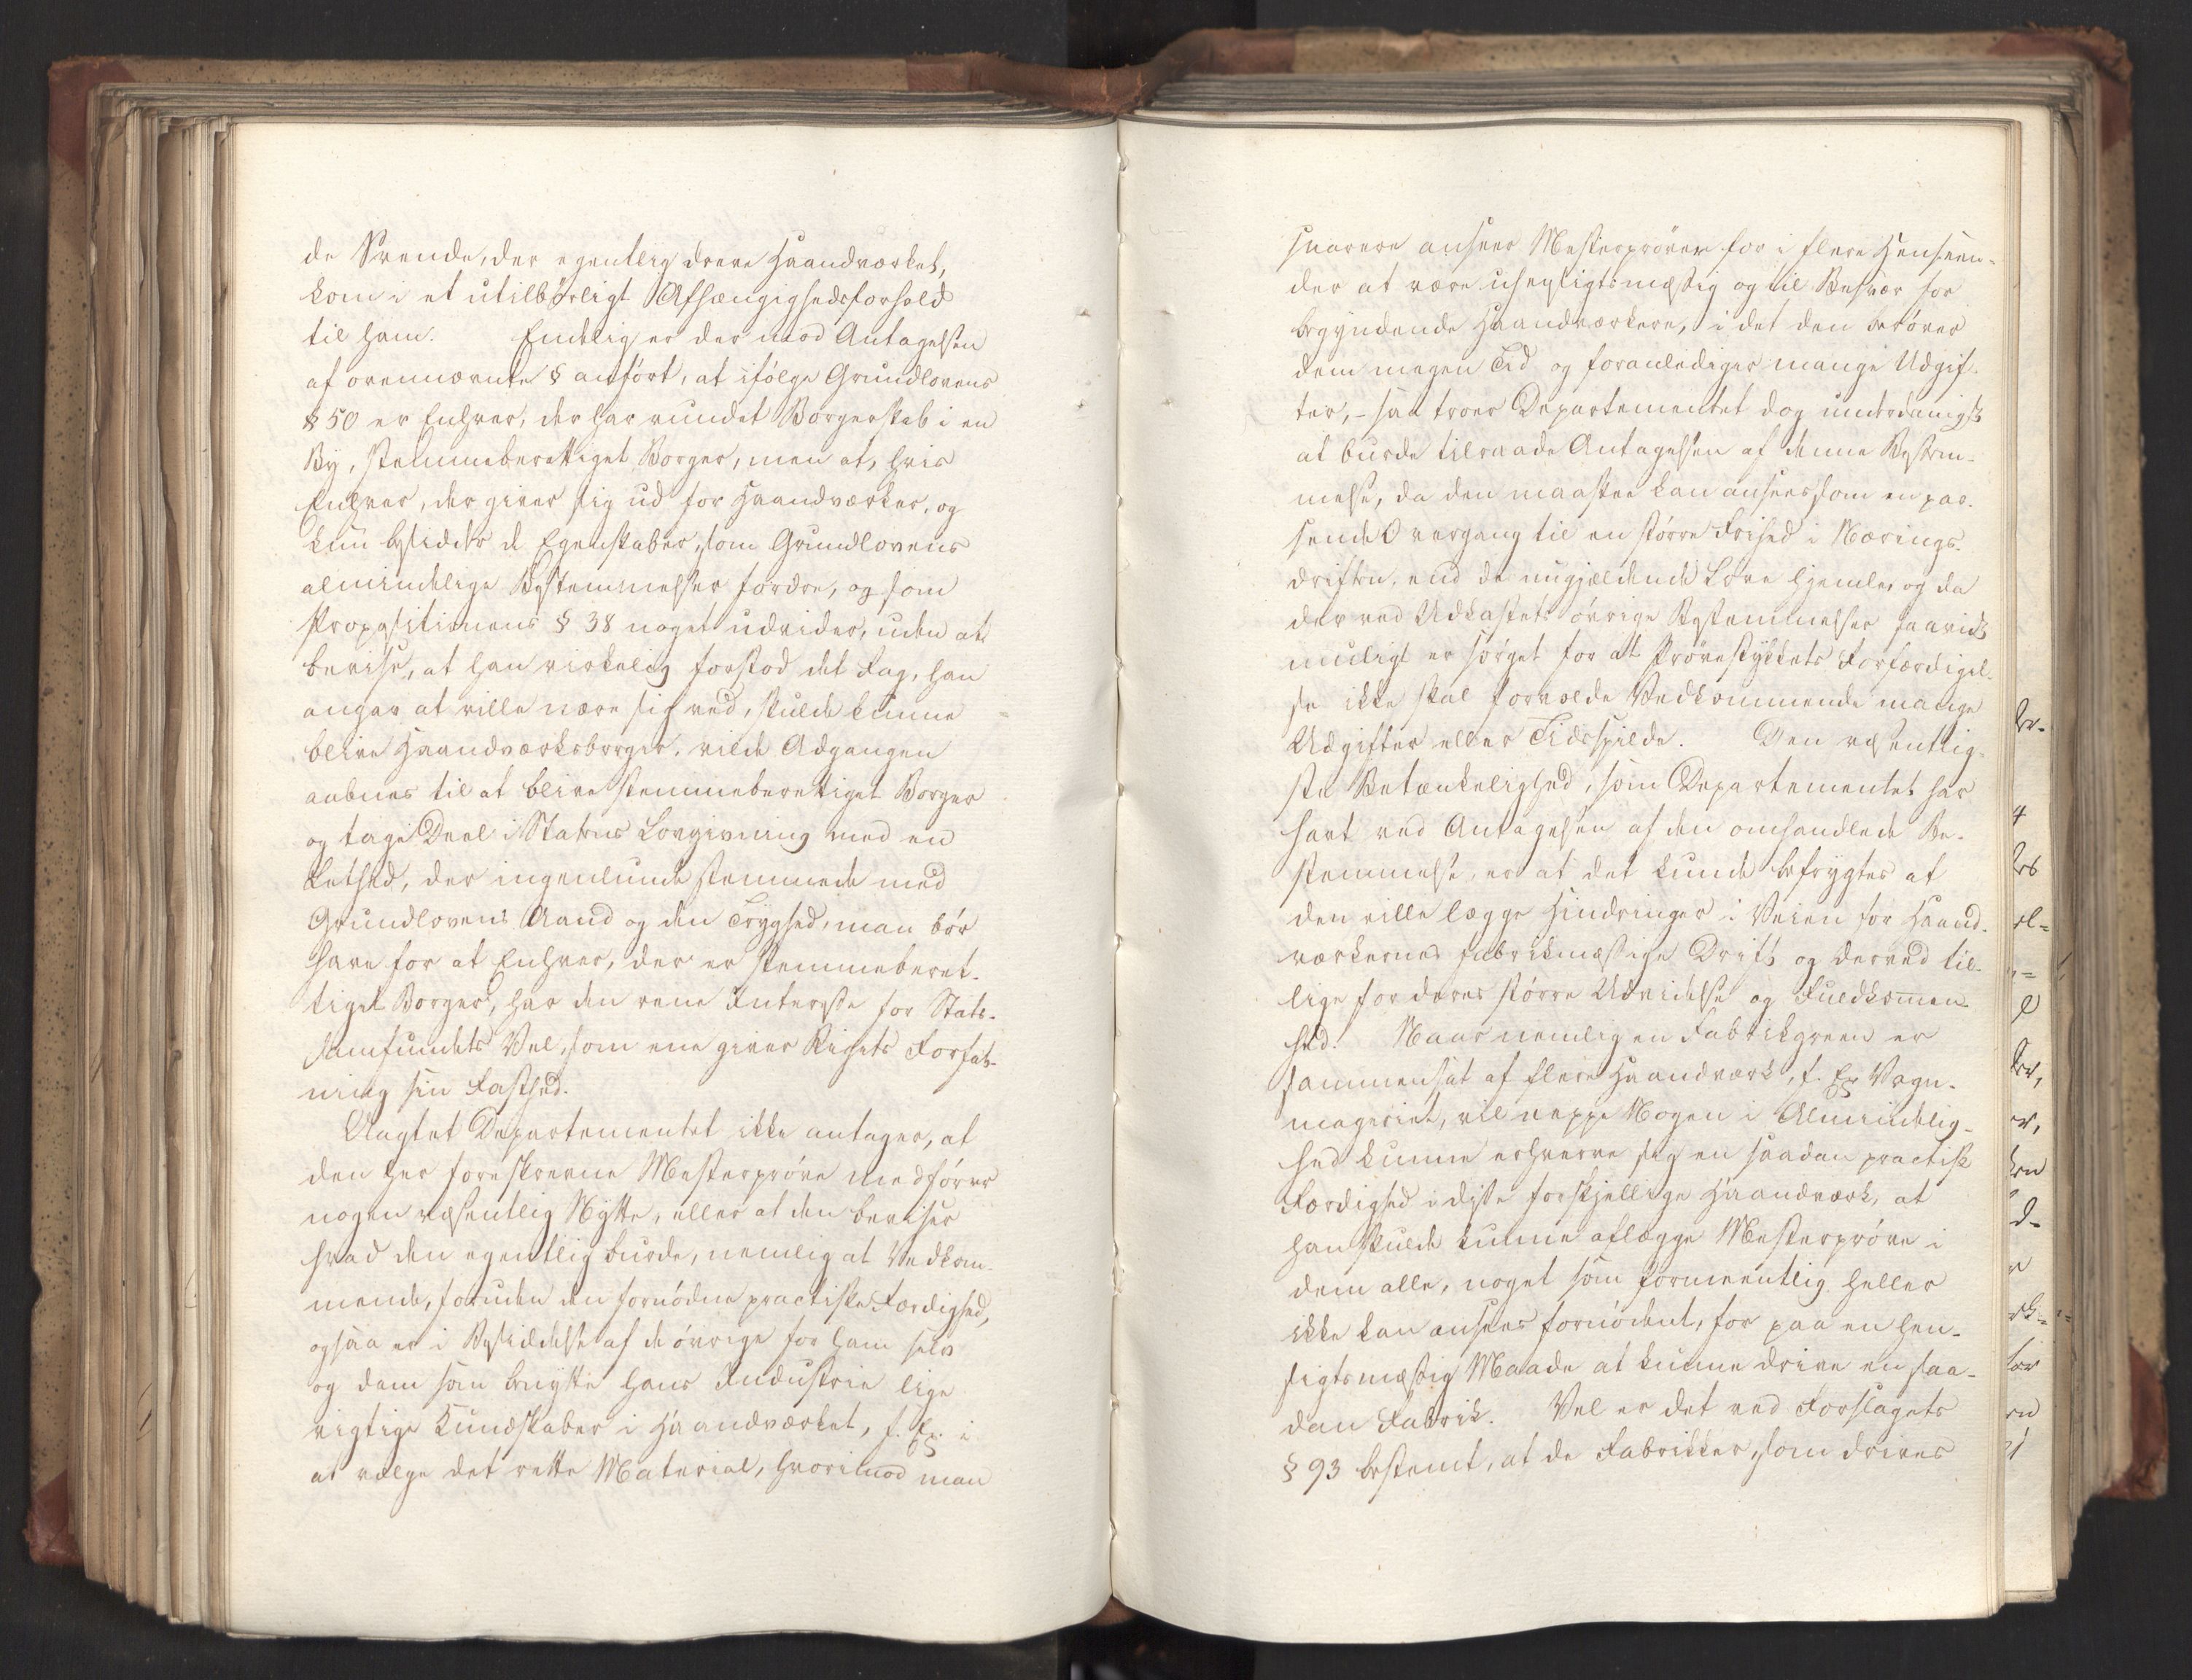 de Svende, der egentlig dreve Haandværket,
kom i et utilbørligt Afhængighedsforhold
til ham. Endelig er der mod Antagelsen
af ovennævnte § anført, at ifølge Grundlovens
§ 50 er Enhver, der har vundet Borgerskab i en
By, stemmeberettiget Borger, men at, hvis
Enhver, der giver sig ud for Haandværker, og
kun besidder de Egenskaber, som Grundlovens
almindelige Bestemmelser fordre, og som
Propositionens § 38 noget udvider, uden at
bevise, at han virkelig forstod det Fag, han
angav at ville nære sig ved, skulde kunne
blive Haandværksborger, vilde Adgangen
aabnes til at blive stemmeberettiget Borger
og tage Deel i Statens Lovgivning med en
Lethed, der ingenlunde stemmede med
Grundlovens Aand og den Tryghed, man bør
have for at Enhver, der er stemmeberet-
tiget Borger, har den rene Interesse for Stats-
samfundets Vel, som ene giver Rigets Forfat-
ning sin Fasthed.
Uagtet Departementet ikke antager, at
den her foreskrevne Mesterprøve medfører
nogen væsentlig Nytte, eller at den beviser
hvad den egentlig burde, nemlig at Vedkom-
mende, foruden den fornødne practiske Færdighed,
ogsaa er i Besiddelse af de øvrige for ham selv
og dem som benytte hans Industrie lige
vigtige Kundskaber i Haandværket, f. Ex. i
at vælge det rette Material, hvorimod man
snarere anseer Mesterprøven for i flere Henseen-
der at være uhensigtsmæssig og til Besvær for
begyndende Haandværkere, i det den berøver
dem megen Tid og foranlediger mange Udgif-
ter, - saa troer Departementet dog underdanigst
at burde tilraade Antagelsen af denne Bestem-
melse, da den maaskee kan ansees som en pas-
sende Overgang til en større Frihed i Nærings-
driften, end de nugjeldende Love hjemle, og da
der ved Udkastets øvrige Bestemmelser saavidt
muligt er sørget for at Prøvestykkets Forfærdigel-
se ikke skal forvolde Vedkommende mange
Udgifter eller Tidsspilde. Den væsentlig-
ste Betænkelighed, som Departementet har
havt ved Antagelsen af den omhandlede Be-
stemmelse, er at det kunde befrygtes at
den ville lægge Hindringer i Veien for Haand-
værkernes fabrikmæssige Drift og derved til-
lige for deres større Udvidelse og Fuldkommen-
hed. Naar nemlig en Fabrikgreen er
sammensat af flere Haandværk, f. Ex. Vogn-
mageriet, vil neppe Nogen i Almindelig-
hed kunne erhverve sig en saadan practisk
Færdighed i disse forskjellige Haandværk, at
han skulde kunne aflægge Mesterprøve i
dem alle, noget som formeentlig heller
ikke kan ansees fornødent, for paa en hen-
sigtsmæssig Maade at kunne drive en saa-
dan Fabrik. Vel er det ved Forslagets
§ 93 bestemt, at de Fabrikker, som drives